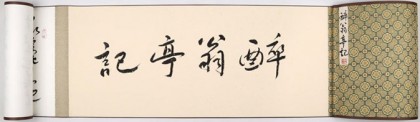 醉翁亭記
醉翁亭記